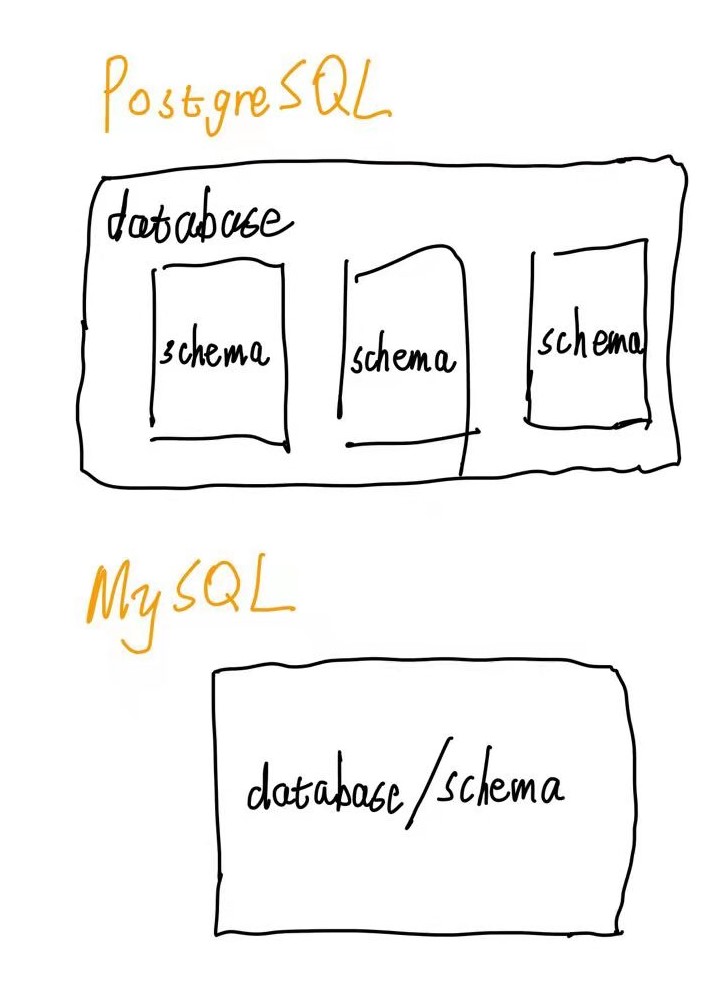 PostgreSQL
database
schema
schema
schema
MySQL
database/schema